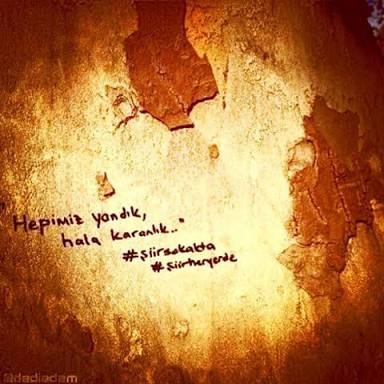 "Hepimiz yandık,
hala karanlık.."
#şiirsokakta
#şiirheryerde
@dadiadam